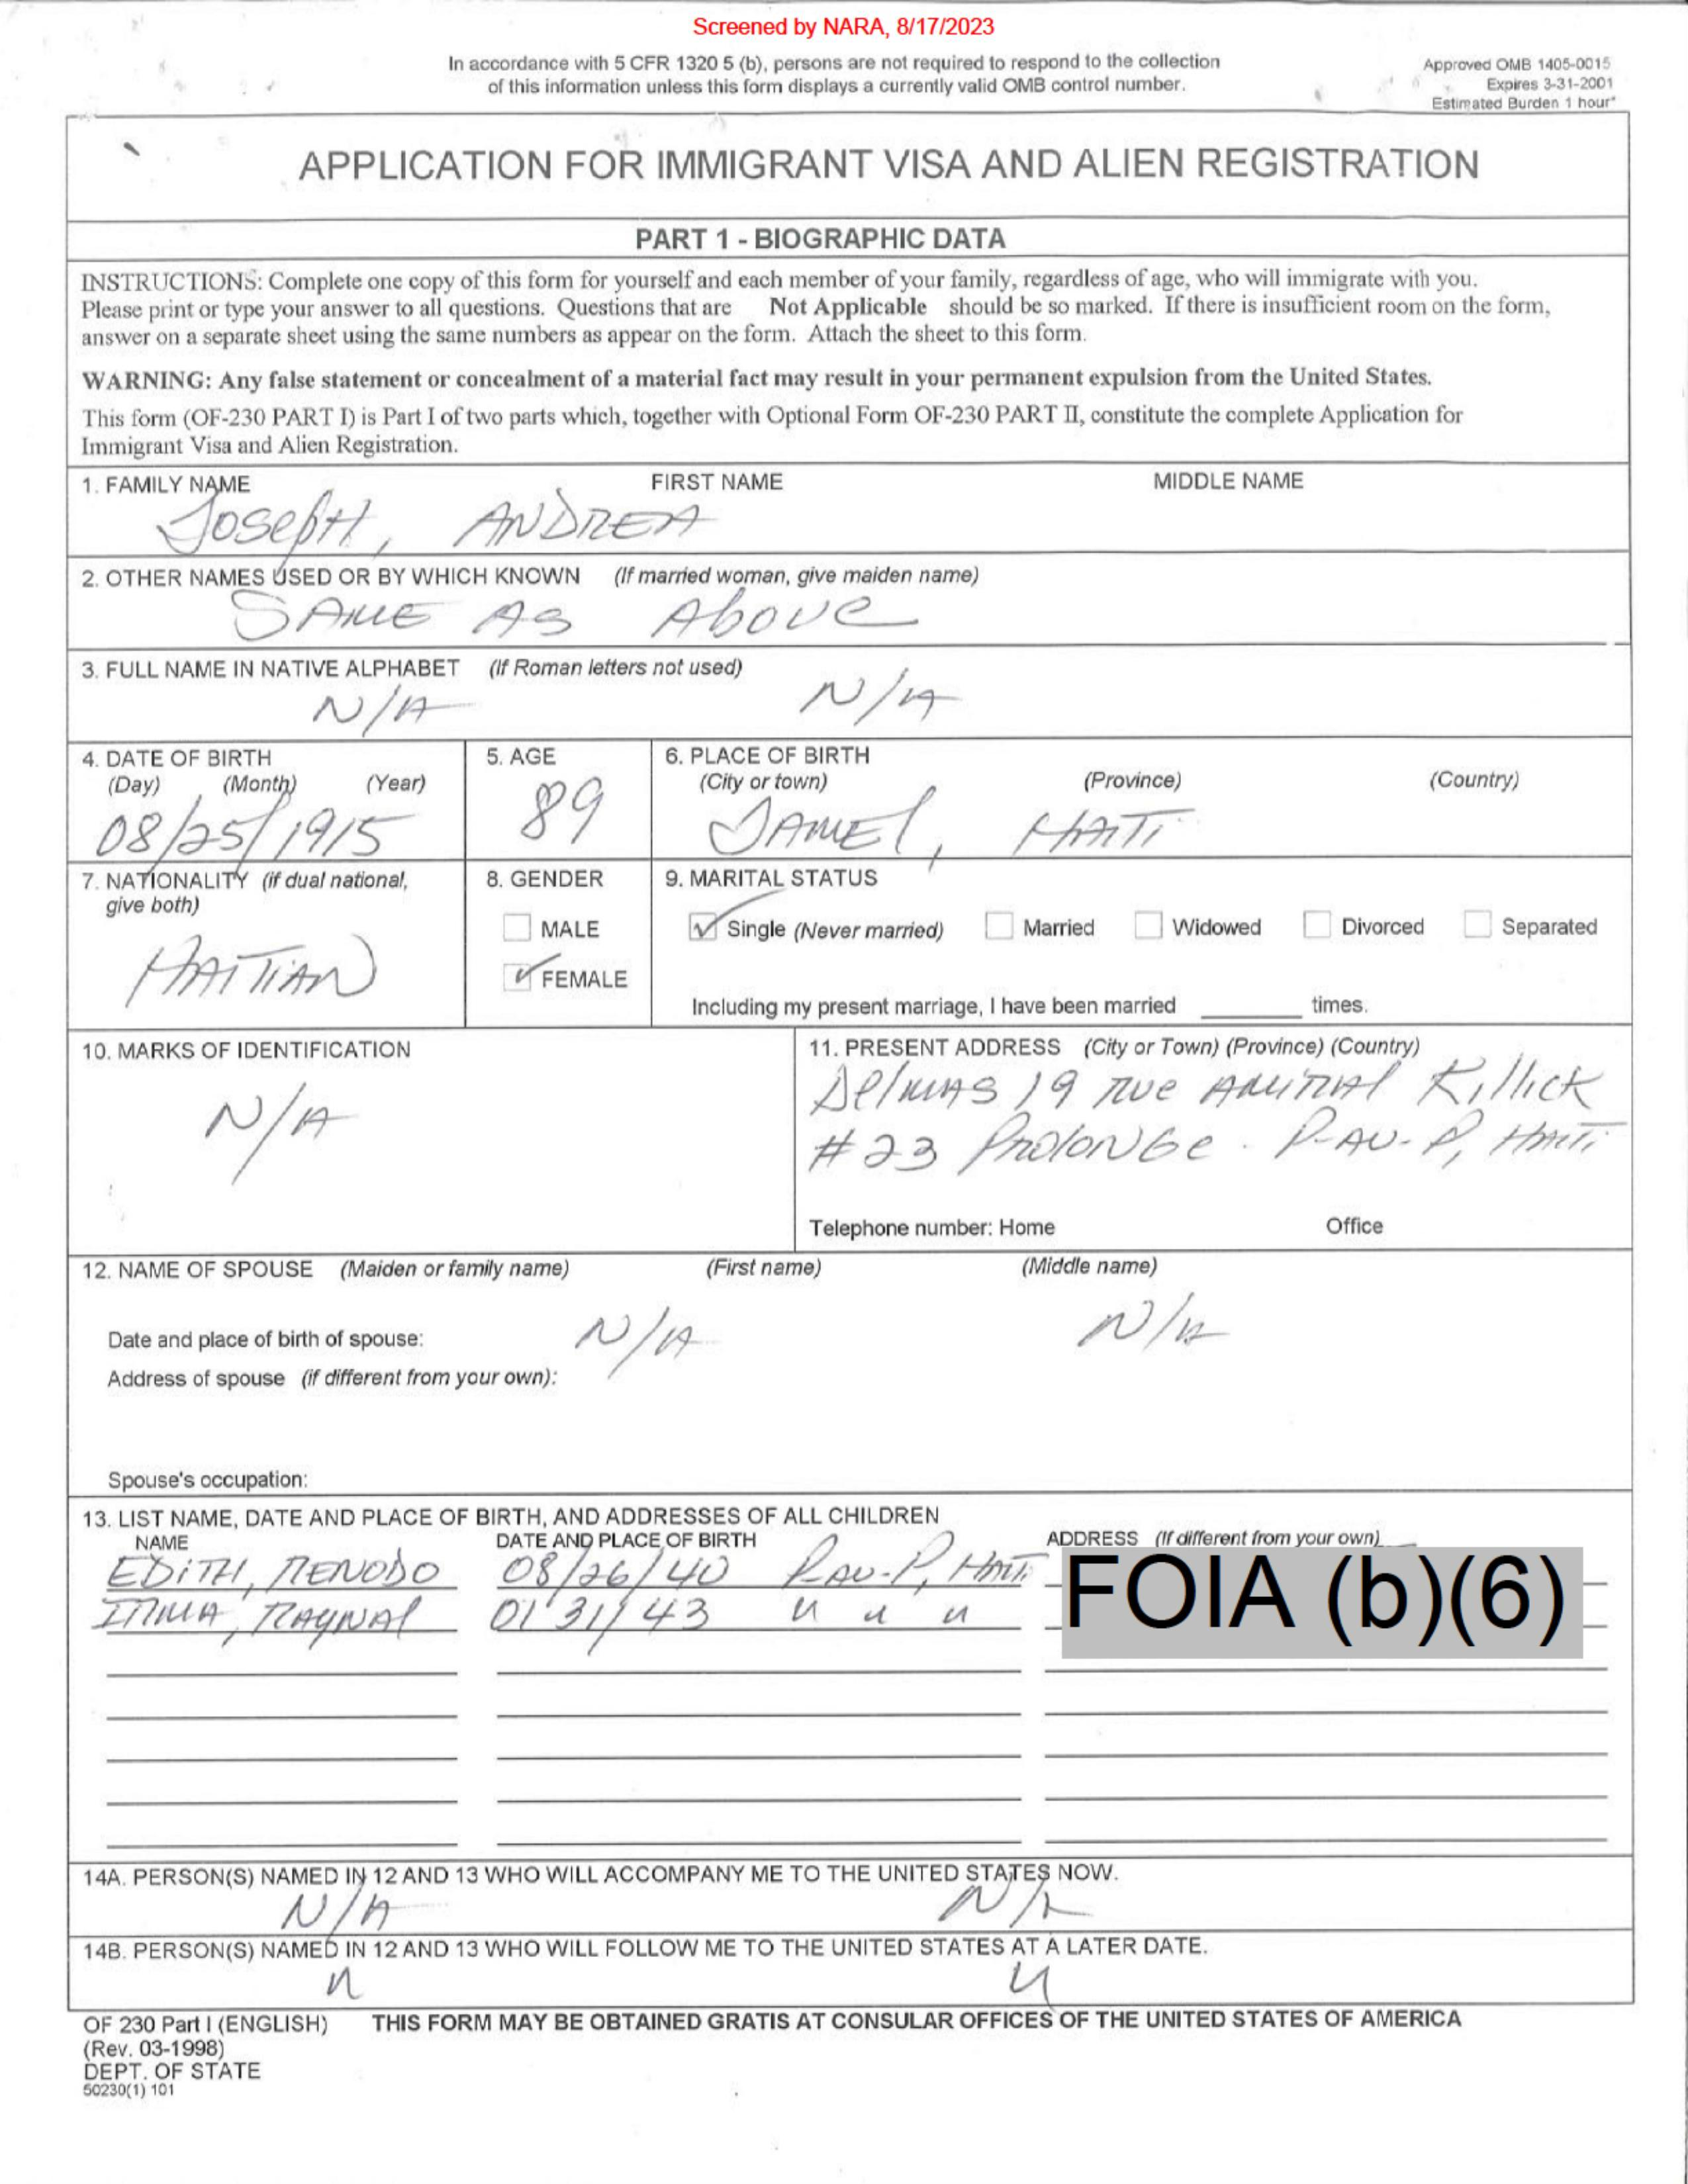 Screened by NARA, 8/17/2023
In accordance with 5 CFR 1320 5 (b), persons are not required to respond to the collection
of this information unless this form displays a currently valid OMB control number.
Approved OMB 1405-0015
Expires 3-31-2001
Estimated Burden 1 hour*
APPLICATION FOR IMMIGRANT VISA AND ALIEN REGISTRATION
PART 1 - BIOGRAPHIC DATA
INSTRUCTIONS: Complete one copy of this form for yourself and each member of your family, regardless of age, who will immigrate with you.
Please print or type your answer to all questions. Questions that are Not Applicable should be so marked. If there is insufficient room on the form,
answer on a separate sheet using the same numbers as appear on the form. Attach the sheet to this form.
WARNING: Any false statement or concealment of a material fact may result in your permanent expulsion from the United States.
This form (OF-230 PART I) is Part I of two parts which, together with Optional Form OF-230 PART II, constitute the complete Application for
Immigrant Visa and Alien Registration.
1. FAMILY NAME FIRST NAME MIDDLE NAME
JosepH, ANDREA
2. OTHER NAMES USED OR BY WHICH KNOWN (If married woman, give maiden name)
SAME AS Above
3. FULL NAME IN NATIVE ALPHABET (If Roman letters not used)
N/A N/A
4. DATE OF BIRTH
(Day) (Month) (Year)
08/25/1915
5. AGE
89
6. PLACE OF BIRTH
(City or town) (Province) (Country)
JAMEl, HAITI
7. NATIONALITY (if dual national,
give both)
HAITIAN
8. GENDER
MALE
FEMALE
9. MARITAL STATUS
Single (Never married) Married Widowed Divorced Separated
Including my present marriage, I have been married ______ times.
10. MARKS OF IDENTIFICATION
N/A
11. PRESENT ADDRESS (City or Town) (Province) (Country)
DelMAS 19 Rue AMIRAl Killick
#23 PROlONGe. P-AU-P, HAITI
Telephone number: Home Office
12. NAME OF SPOUSE (Maiden or family name) (First name) (Middle name)
N/A N/A
Date and place of birth of spouse:
Address of spouse (if different from your own):
Spouse's occupation:
13. LIST NAME, DATE AND PLACE OF BIRTH, AND ADDRESSES OF ALL CHILDREN
NAME DATE AND PLACE OF BIRTH ADDRESS (If different from your own)
EDITH, RENODO 08/26/40 P-AU-P, HAITI
IRMA, RAYNAl 01/31/43 " " "
FOIA (b)(6)
14A. PERSON(S) NAMED IN 12 AND 13 WHO WILL ACCOMPANY ME TO THE UNITED STATES NOW.
N/A N/A
14B. PERSON(S) NAMED IN 12 AND 13 WHO WILL FOLLOW ME TO THE UNITED STATES AT A LATER DATE.
" "
OF 230 Part I (ENGLISH) THIS FORM MAY BE OBTAINED GRATIS AT CONSULAR OFFICES OF THE UNITED STATES OF AMERICA
(Rev. 03-1998)
DEPT. OF STATE
50230(1) 101